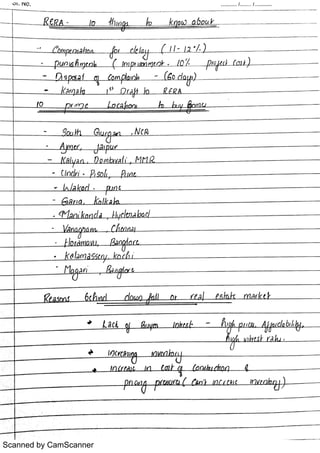 RERA - 10 things to know about
- Compensation for delay (11-12%)
- punishment (imprisonment. 10% project cost)
- Disposal of Complaints - (60 days)
- Karnala 1st Draft to RERA
10 prime Locations to buy home
- South Gurgan, NCR
- Ajmer, Jaipur
- Kalyan, Dombivali, MMR
- Undri - Pisoli, Pune
- Wakad - pune
- Garia, Kolkata
- Manikonda, Hyderabad
- Vanagram, Chennai
- Horamavu, Banglore
- Kalamassery, kochi
- Magari, Banglore
Reasons behind down fall or real estate market
Lack of Buyers Interest - high price, Affordability,
high interest rate.
increasing inventory
increase in cost of construction &
pricing pressure (Can't increase inventory)
Scanned by CamScanner